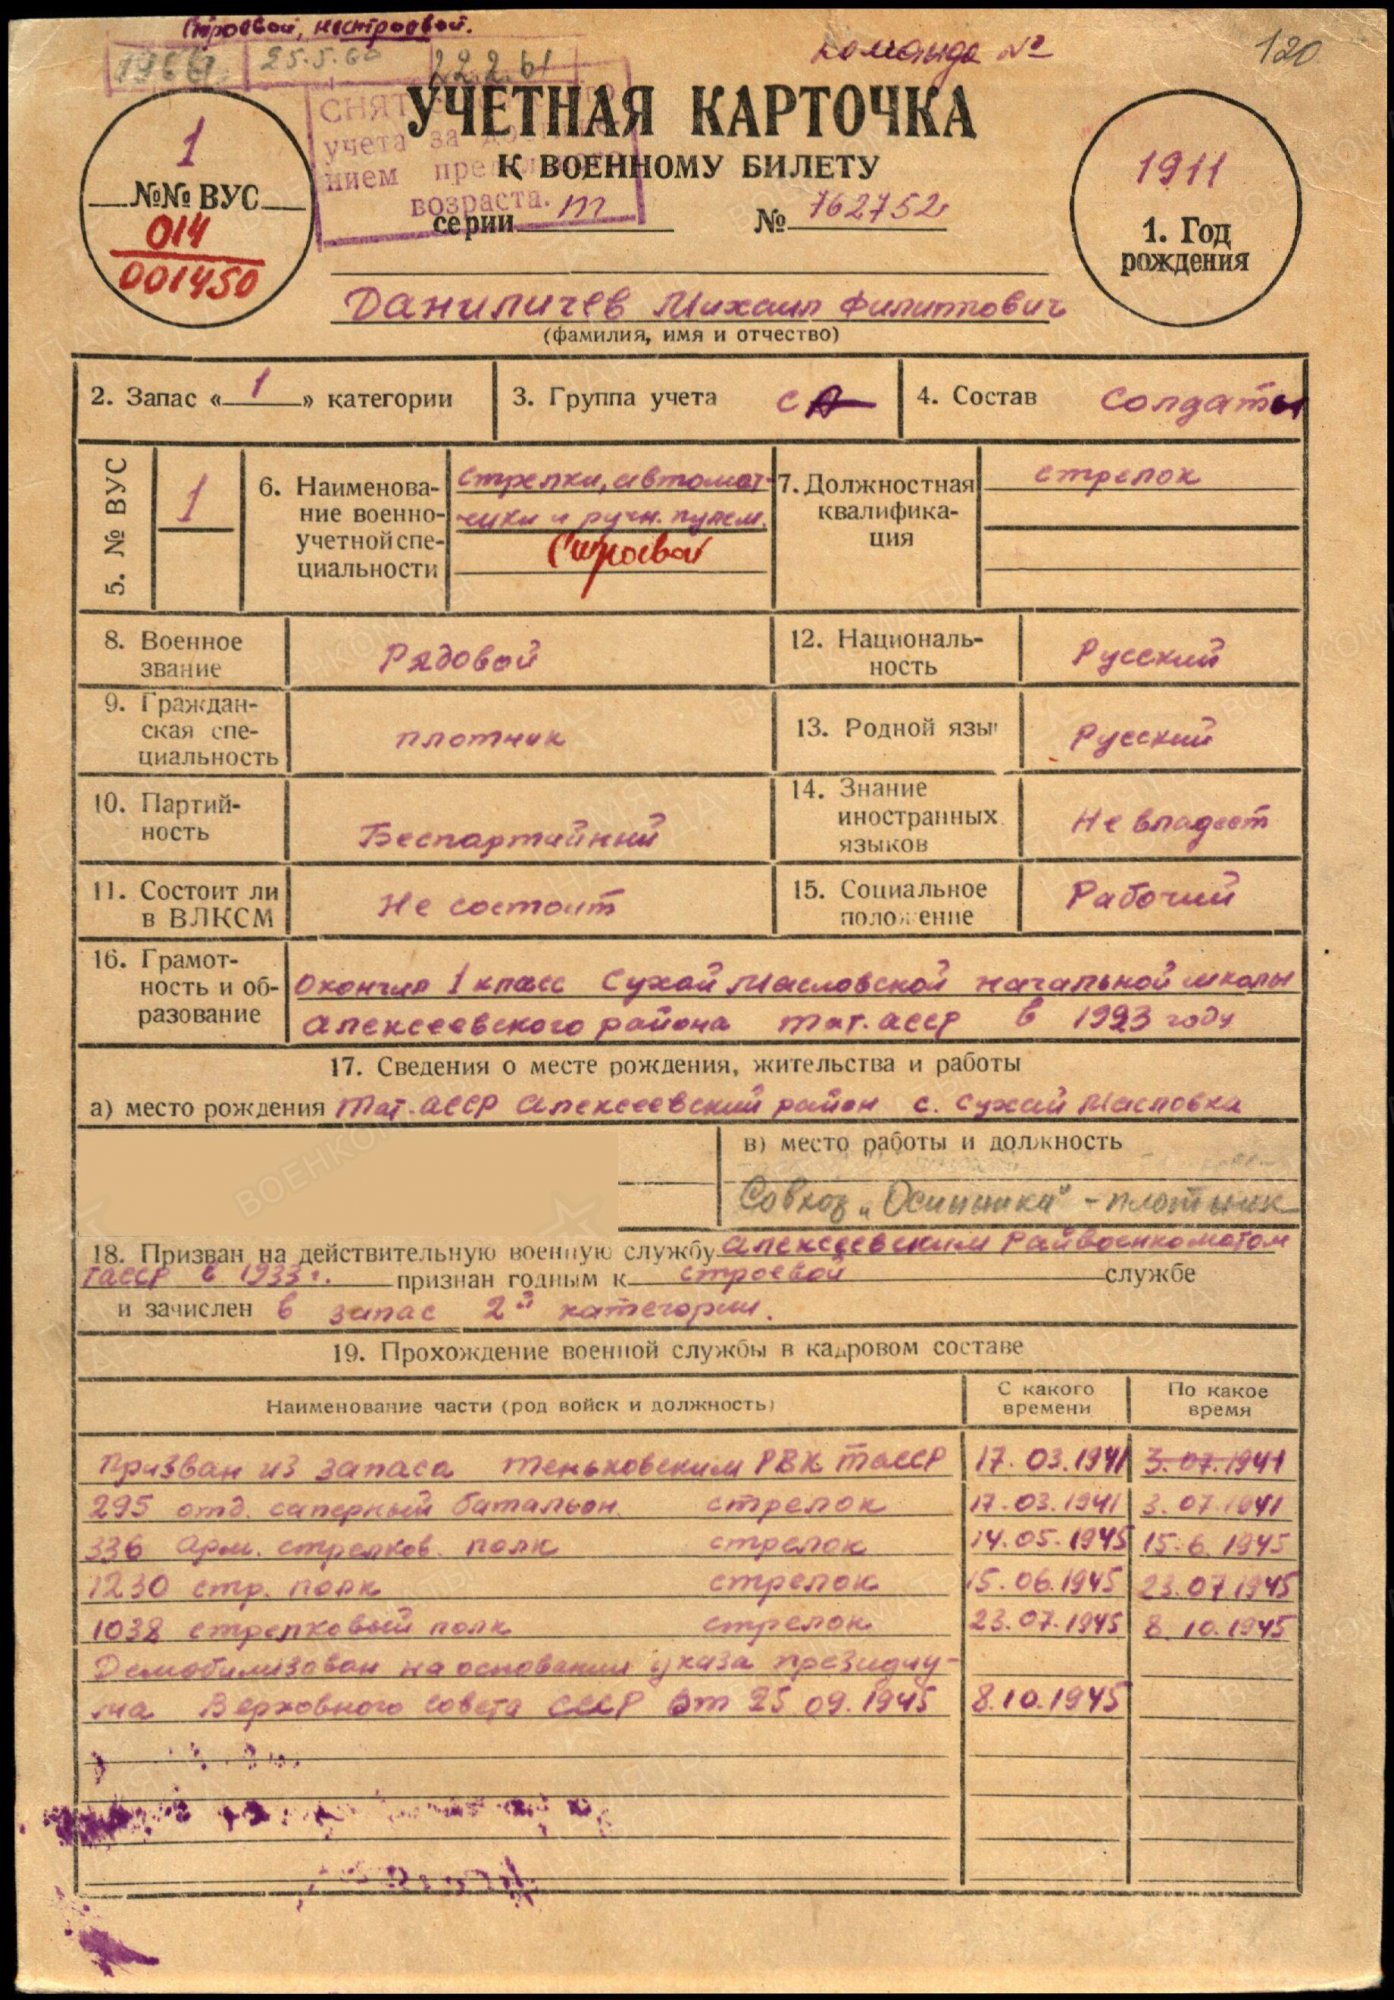 Строевой, нестроевой.
команда №
120
1966 25.5.60 22.2.61
СНЯТ
учета за
нием
возраста.
УЧЕТНАЯ КАРТОЧКА
К ВОЕННОМУ БИЛЕТУ
серии m № 762752
1
№№ ВУС
014
001450
1911
1. Год
рождения
Даниличев Михаил Филиппович
(фамилия, имя и отчество)
2. Запас « 1 » категории
3. Группа учета СА
4. Состав Солдаты
5. № ВУС
1
6. Наименова-
ние военно-
учетной спе-
циальности
стрелки, автомат-
чики и ручн. пулем.
Строевой
7. Должностная
квалифика-
ция
стрелок
8. Военное
звание
Рядовой
12. Националь-
ность
Русский
9. Граждан-
ская спе-
циальность
плотник
13. Родной язы
Русский
10. Партий-
ность
Беспартийный
14. Знание
иностранных
языков
Не владеет
11. Состоит ли
в ВЛКСМ
Не состоит
15. Социальное
положение
Рабочий
16. Грамот-
ность и об-
разование
Окончил 1 класс Сухой Масловской начальной школы
Алексеевского района Тат. АССР в 1923 году
17. Сведения о месте рождения, жительства и работы
а) место рождения Тат. АССР Алексеевский район с. Сухай Масловка
в) место работы и должность
Совхоз - плотник
18. Призван на действительную военную службу Алексеевским Райвоенкоматом
ТАССР в 1933 г. признан годным к строевой службе
и зачислен в запас 2й категории.
19. Прохождение военной службы в кадровом составе
Наименование части (род войск и должность)
С какого
времени
По какое
время
Призван из запаса Теньковским РВК ТАССР 17.03.1941 3.07.1941
295 отд. саперный батальон. стрелок 17.03.1941 3.07.1941
336 Арм. стрелков. полк стрелок 14.05.1945 15.6.1945
1230 стр. полк стрелок 15.06.1945 23.07.1945
1038 стрелковый полк стрелок 23.07.1945 8.10.1945
Демобилизован на основании указа президиу-
ма Верховного Совета СССР от 25.09.1945 8.10.1945